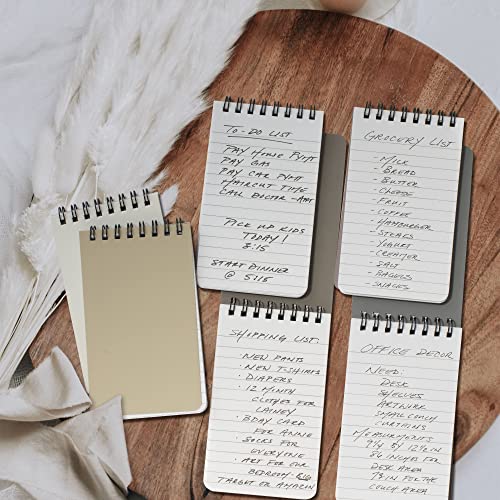 TO-DO LIST
PAY HOME PYMT
PAY GAS
PAY CAR PYMT
HAIRCUT TIME
CALL DOCTOR-AMY
PICK UP KIDS
TODAY!
3:15
START DINNER
@ 5:15
GROCERY LIST
- MILK
- BREAD
- BUTTER
- CHEESE
- FRUIT
- COFFEE
- HAMBURGER
- STEAKS
- YOGURT
- CREAMER
- SALT
- BAGELS
- SNACKS
SHOPPING LIST:
· NEW PANTS
· NEW T-SHIRTS
· DIAPERS
· 12 MONTH
CLOTHES FOR
LAINEY
· BDAY CARD
FOR ANNIE
· SOCKS FOR
EVERYONE
· ART FOR OUR
BEDROOM, BIG
TARGET OR AMAZON
OFFICE DECOR
NEED:
DESK
SHELVES
ARTWORK
SMALL COUCH
CURTAINS
MEASUREMENTS
9 1/2 BY 12 1/2 IN
86 INCHES FOR
DESK AREA
78 IN FOR THE
COUCH AREA